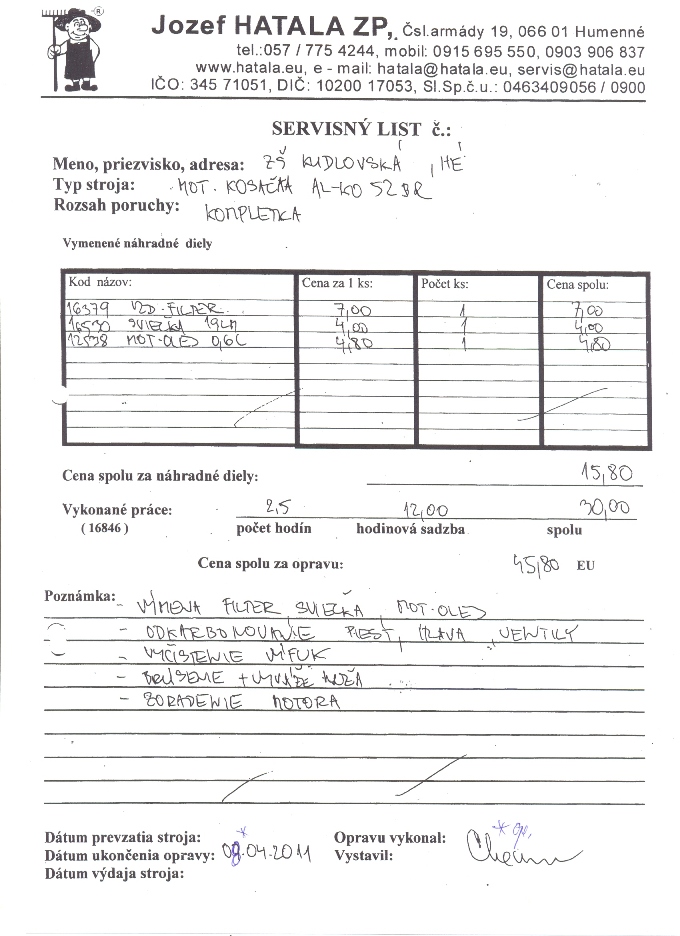 ®
Jozef HATALA ZP,, Čsl.armády 19, 066 01 Humenné
tel.:057 / 775 4244, mobil: 0915 695 550, 0903 906 837
www.hatala.eu, e - mail: hatala@hatala.eu, servis@hatala.eu
IČO: 345 71051, DIČ: 10200 17053, Sl.Sp.č.u.: 0463409056 / 0900
SERVISNÝ LIST č.:
Meno, priezvisko, adresa: ZŠ KUDLOVSKÁ, HÉ
Typ stroja: MOT. KOSAČKA AL-KO 52 BR
Rozsah poruchy: KOMPLETKA
Vymenené náhradné diely
Kod názov: Cena za 1 ks: Počet ks: Cena spolu:
16379 VZD. FILTER 7,00 1 7,00
16530 SVIEČKA 19LM 4,00 1 4,00
12538 MOT-OLEJ 0,6L 4,80 1 4,80
Cena spolu za náhradné diely: 15,80
Vykonané práce: 2,5 12,00 30,00
( 16846 ) počet hodín hodinová sadzba spolu
Cena spolu za opravu: 45,80 EU
Poznámka: - VÝMENA FILTER, SVIEČKA, MOT-OLEJ
- ODKARBONOVANIE PIEST, HLAVA, VENTILY
- VYČISTENIE VÍFUK
- BRÚSENIE + VYVÁŽE NOŽA
- ZORADENIE MOTORA
Dátum prevzatia stroja: Opravu vykonal:
Dátum ukončenia opravy: 08.04.2011 Vystavil:
Dátum výdaja stroja: